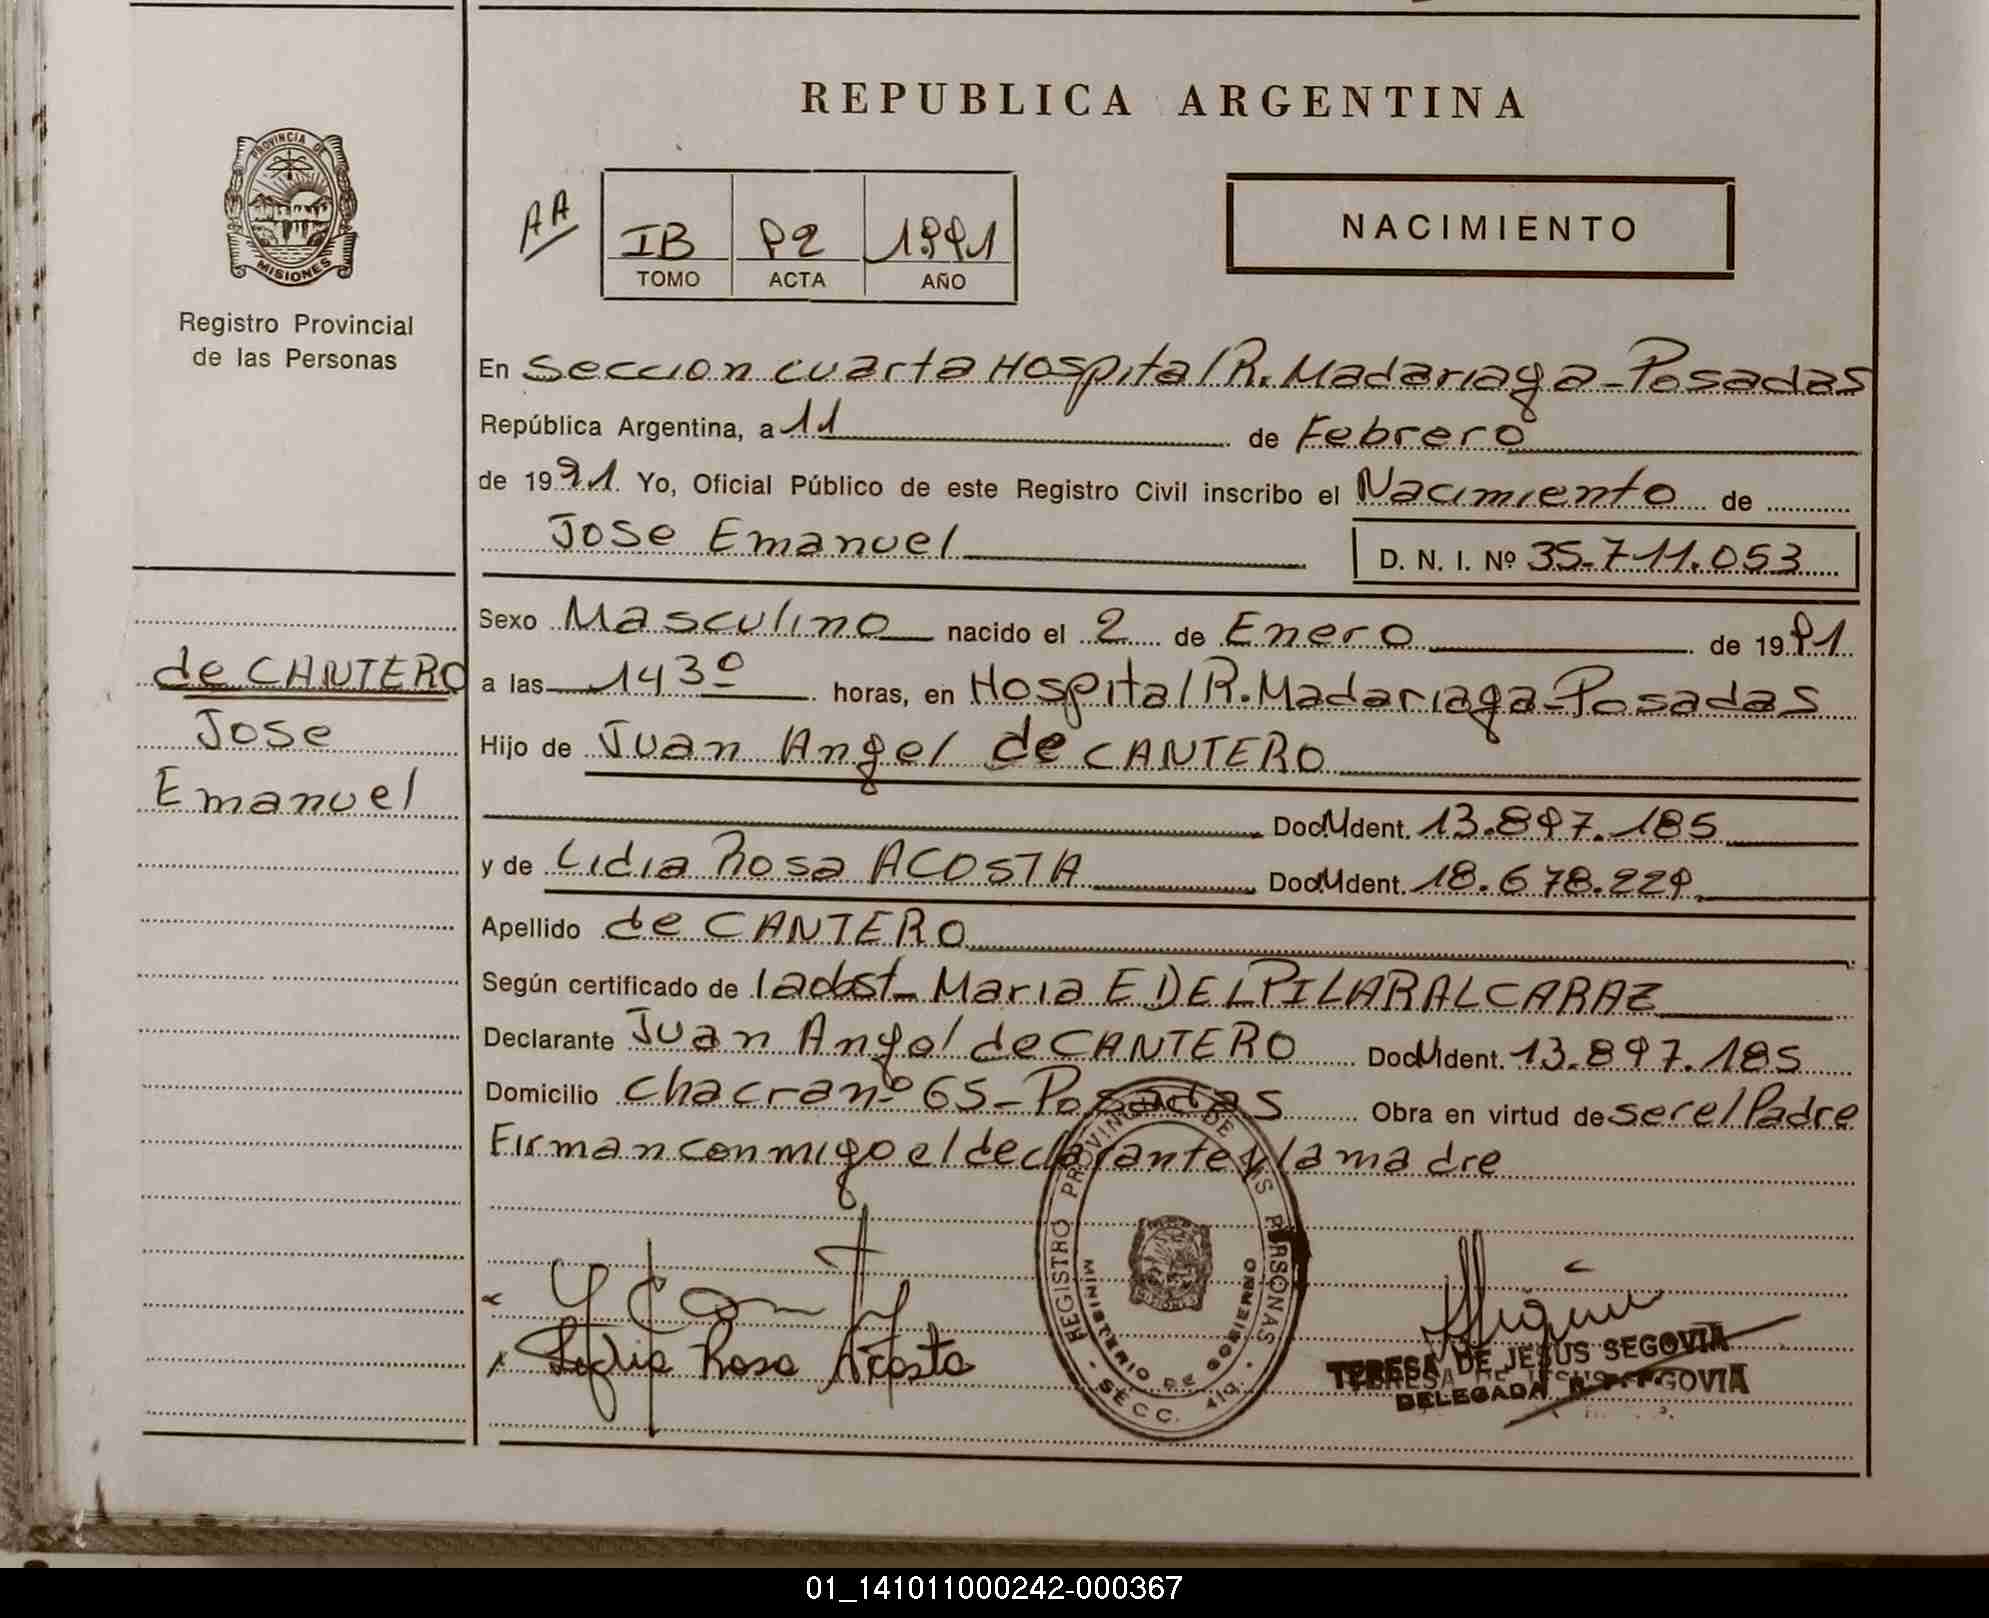 REPUBLICA ARGENTINA
PROVINCIA DE MISIONES
Registro Provincial
de las Personas
AA
IB 92 1991
TOMO ACTA AÑO
NACIMIENTO
En Seccion cuarta Hospital R. Madariaga - Posadas
República Argentina, a 11 de Febrero
de 1991. Yo, Oficial Público de este Registro Civil inscribo el Nacimiento de
Jose Emanuel
D. N. I. Nº 35.711.053
de CANTERO
Jose
Emanuel
Sexo Masculino nacido el 2 de Enero de 1991
a las 14 30 horas, en Hospital R. Madariaga - Posadas
Hijo de Juan Angel de CANTERO
Doc. Ident. 13.897.185
y de Lidia Rosa ACOSTA Doc. Ident. 18.678.229
Apellido de CANTERO
Según certificado de la obst_ Maria E DEL PILAR ALCARAZ
Declarante Juan Angel de CANTERO Doc. Ident. 13.897.185
Domicilio Chacra nº 65 - Posadas Obra en virtud de ser el Padre
Firman conmigo el declarante y la madre
REGISTRO PROVINCIAL DE LAS PERSONAS
MINISTERIO DE GOBIERNO
- SECC. 4ta. -
Lydia Rosa Acosta
TERESA DE JESUS SEGOVIA
DELEGADA
01_141011000242-000367